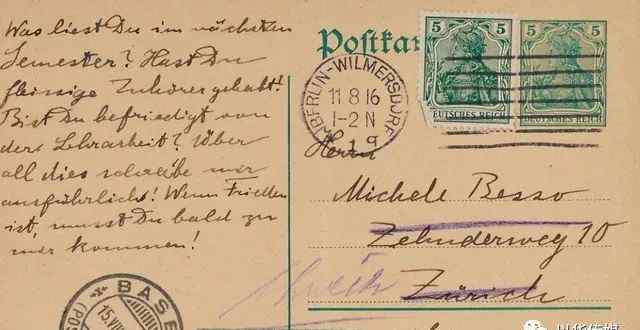 Was liest Du im nächsten
Semester? Hast Du
fleissige Zuhörer gehabt?
Bist Du befriedigt von
der Lehrarbeit? Über
all dies schreibe mir
ausführlich! Wenn Frieden
ist, musst Du bald zu
mir kommen!
Postkar
5 5
5 5
EUTSCHES REICH
DEUTSCHES REICH
BERLIN-WILMERSDORF
11 8 16
1-2 N
1 g
Herrn
Michele Besso
Zehnderweg 10
Zürich
BASE
15.VIII